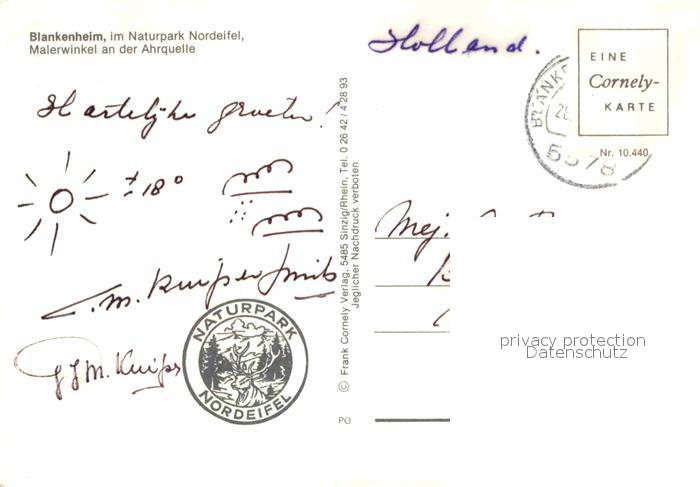 Blankenheim, im Naturpark Nordeifel,
Malerwinkel an der Ahrquelle
Holland.
EINE
Cornely-
KARTE
Nr. 10.440
Hartelijke groeten!
± 18°
Mej.
Kuiper Smits
Kuiper
NATURPARK
NORDEIFEL
© Frank Cornely Verlag, 5485 Sinzig/Rhein, Tel. 0 26 42 / 4 28 93
Jeglicher Nachdruck verboten
PO
privacy protection
Datenschutz